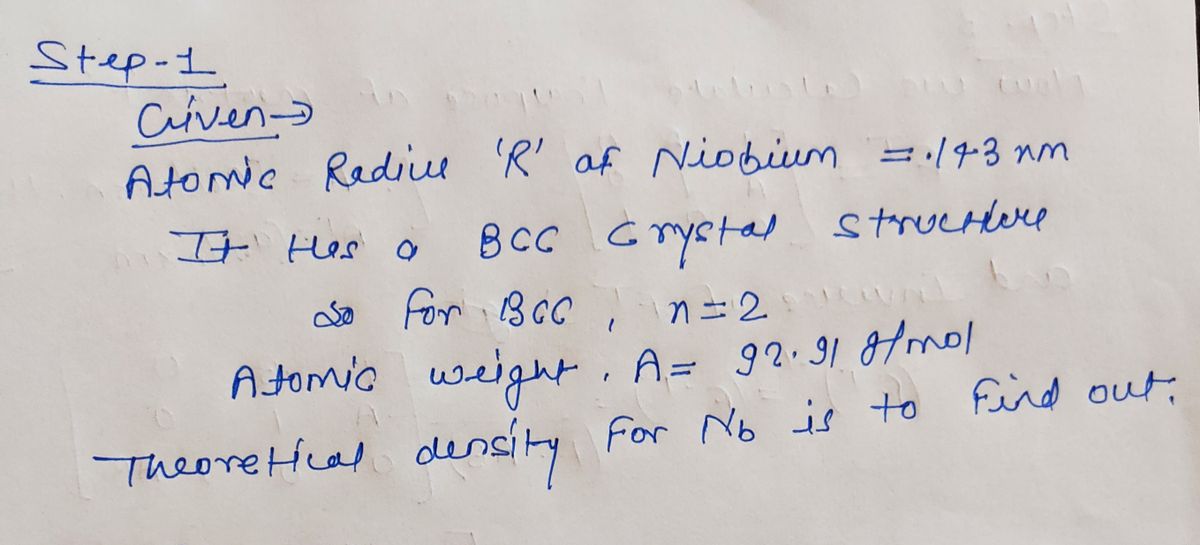 Step-1
Given→
Atomic Radius 'R' of Niobium = .143 nm
It Has a BCC Crystal structure
so for BCC, n=2
Atomic weight, A= 92.91 g/mol
Theoretical density For Nb is to Find out.